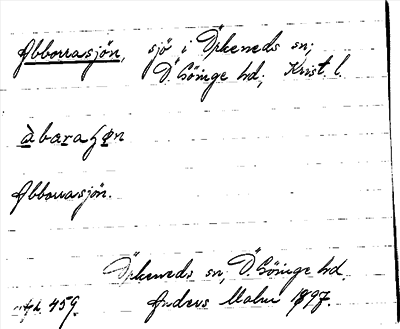 Abborrasjön, sjö i Örkeneds sn;
Ö. Göinge hd; Krist. l.
Abborrasjön.
Örkeneds sn, Ö. Göinge hd.
459. Anders Malm 1897.